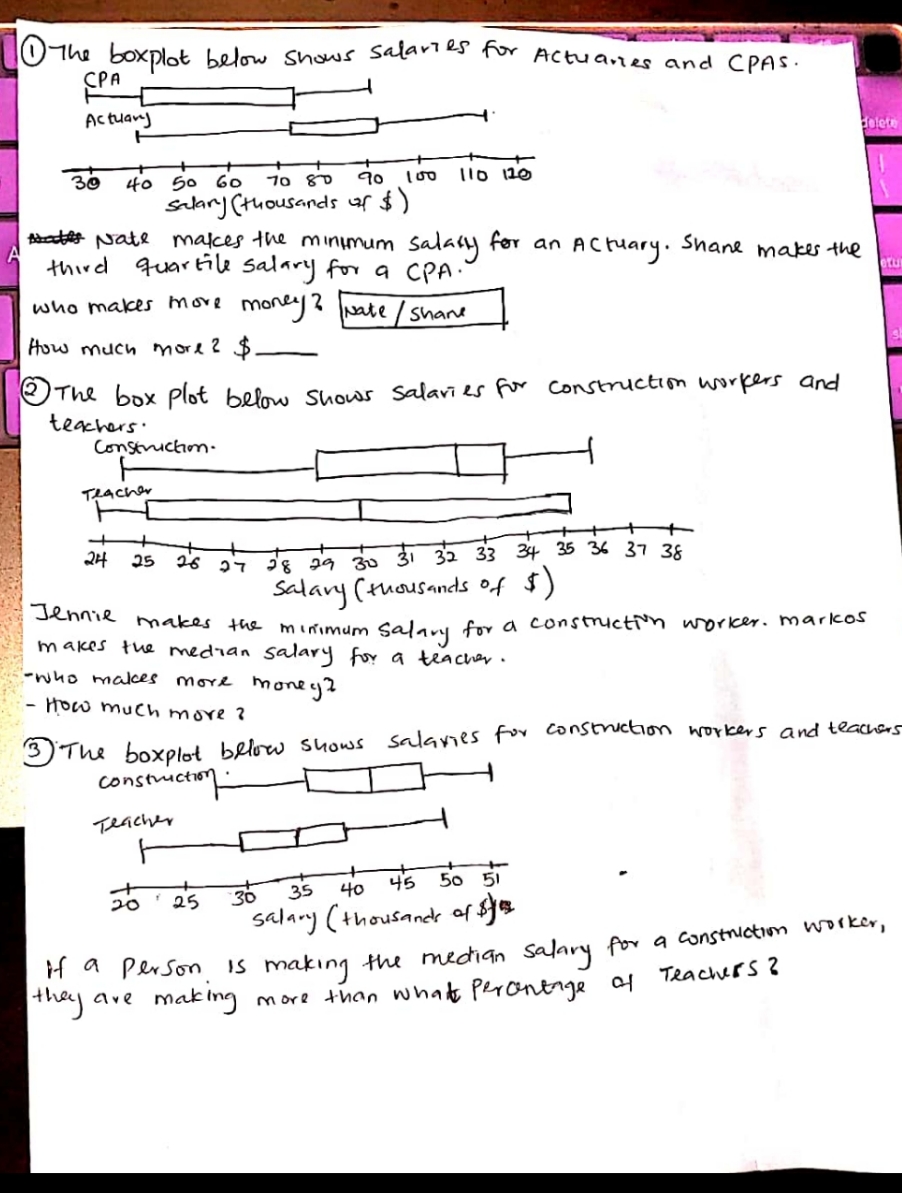 ① The boxplot below shows salaries for Actuaries and CPAs.
CPA
Actuary
30 40 50 60 70 80 90 100 110 120
salary (thousands of $)
Nate makes the minimum salary for an Actuary. Shane makes the
third quartile salary for a CPA.
who makes more money? Nate / Shane
How much more? $
② The box plot below shows salaries for construction workers and
teachers.
Construction.
Teacher
24 25 26 27 28 29 30 31 32 33 34 35 36 37 38
Salary (thousands of $)
Jennie makes the minimum salary for a construction worker. markos
makes the median salary for a teacher.
-who makes more money?
- How much more?
③ The boxplot below shows salaries for construction workers and teachers
construction
Teacher
20 25 30 35 40 45 50 51
salary (thousands of $)
If a person is making the median salary for a construction worker,
they are making more than what percentage of Teachers?
delete